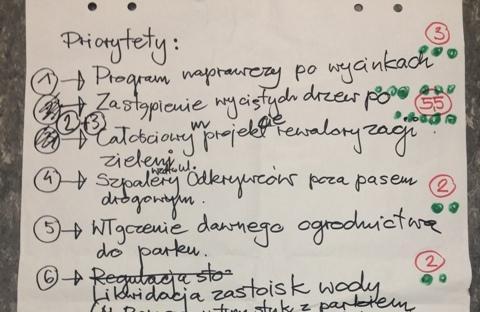 Priorytety:
3
1 → Program naprawczy po wycinkach
→ Zastąpienie wyciętych drzew po
5,5
2 3
→ Całościowy projekt rewaloryzacji
zieleni
4 → Szpalery Odkrywców poza pasem
drogowym.
2
5 → Włączenie dawnego ogrodnictwa
do parku.
2
6 → Regulacja sto-
Likwidacja zastoisk wody
styk z parkiem